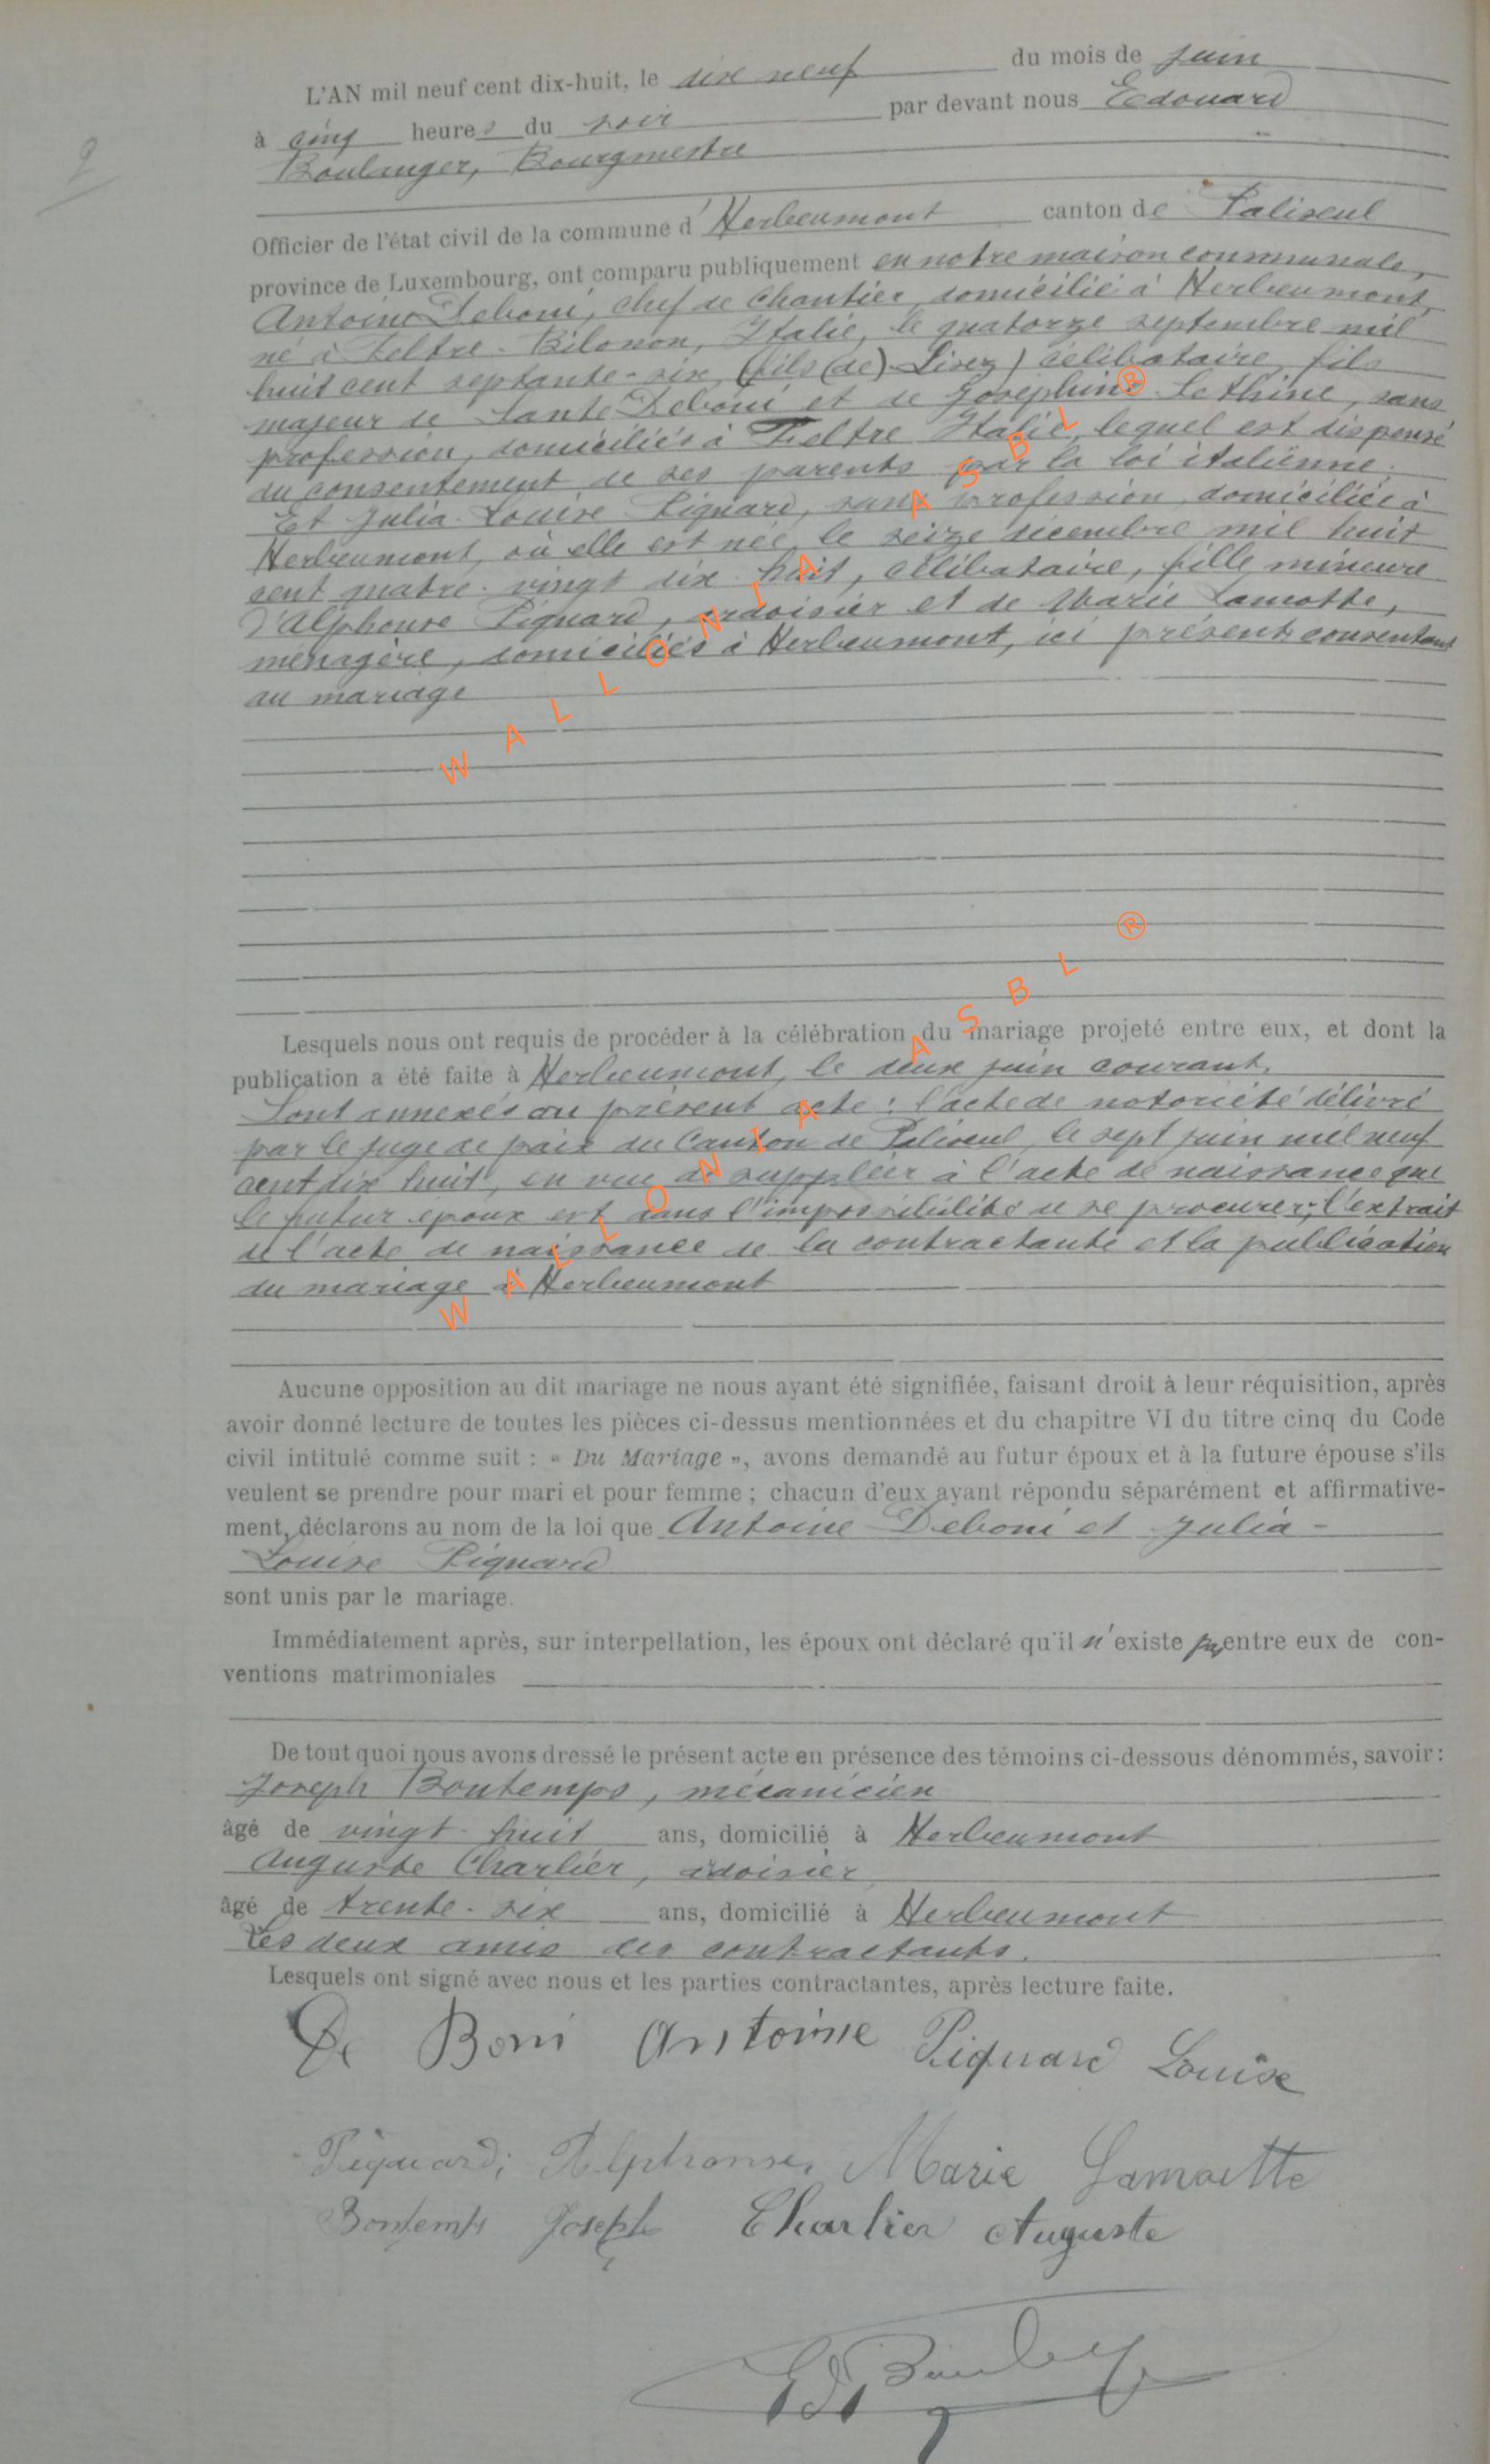 2
L'AN mil neuf cent dix-huit, le dix neuf du mois de juin
à cinq heures du soir par devant nous Edouard
Boulanger, Bourgmestre
Officier de l'état civil de la commune d'Herbeumont canton de Paliseul
province de Luxembourg, ont comparu publiquement en notre maison communale,
Antoine Deboni, chef de chantier, domicilié à Herbeumont,
né à Feltre - Italie, le quatorze septembre mil
huit cent septante-six, (fils (de) Lisez) célibataire, fils
majeur de Sante Deboni et de Josephine, sans
profession, domiciliés à Feltre Italie, lequel est dispensé
du consentement de ses parents par la loi italienne.
Et Julia-Louise Piquard, sans profession, domiciliée à
Herbeumont, où elle est née le seize décembre mil huit
cent quatre-vingt dix huit, célibataire, fille mineure
d'Alphonse Piquard, ardoisier et de Marie Lamotte,
ménagère, domiciliés à Herbeumont, ici présents consentant
au mariage
WALLONIA ASBL ®
Lesquels nous ont requis de procéder à la célébration du mariage projeté entre eux, et dont la
publication a été faite à Herbeumont, le deux juin courant.
Sont annexés au présent acte : l'acte de notoriété délivré
par le juge de paix du Canton de Paliseul, le sept juin mil neuf
cent dix huit, en vue de suppléer à l'acte de naissance que
le futur époux est dans l'impossibilité de se procurer; l'extrait
de l'acte de naissance de la contractante et la publication
du mariage à Herbeumont
WALLONIA ASBL ®
Aucune opposition au dit mariage ne nous ayant été signifiée, faisant droit à leur réquisition, après
avoir donné lecture de toutes les pièces ci-dessus mentionnées et du chapitre VI du titre cinq du Code
civil intitulé comme suit : « Du Mariage », avons demandé au futur époux et à la future épouse s'ils
veulent se prendre pour mari et pour femme ; chacun d'eux ayant répondu séparément et affirmative-
ment, déclarons au nom de la loi que Antoine Deboni et Julia-
Louise Piquard
sont unis par le mariage.
Immédiatement après, sur interpellation, les époux ont déclaré qu'il n'existe pas entre eux de con-
ventions matrimoniales
De tout quoi nous avons dressé le présent acte en présence des témoins ci-dessous dénommés, savoir :
Joseph Bontemps, mécanicien
âgé de vingt-huit ans, domicilié à Herbeumont
Auguste Charlier, ardoisier
âgé de trente-six ans, domicilié à Herbeumont
Les deux amis des contractants.
Lesquels ont signé avec nous et les parties contractantes, après lecture faite.
De Boni Antoine Piquard Louise
Piquard, Alphonse, Marie Lamotte
Bontemps Joseph Charlier Auguste